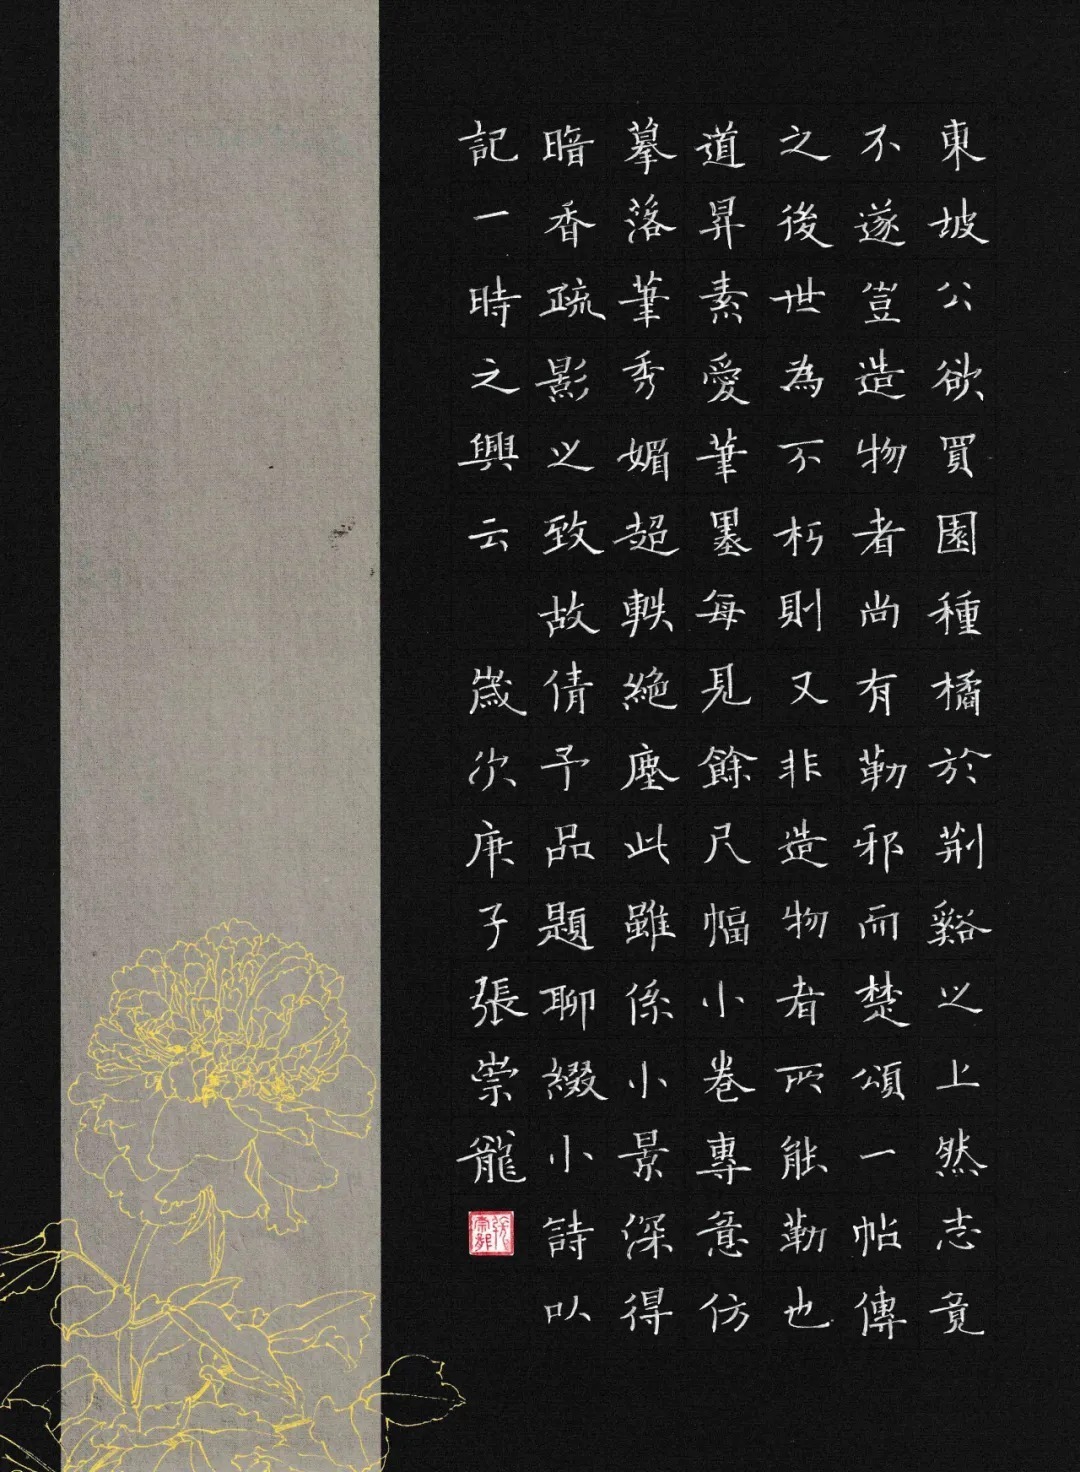 東坡公欲買園種橘於荆谿之上然志竟
不遂豈造物者尚有勒邪而楚頌一帖傳
之後世為不朽則又非造物者所能勒也
道昇素愛筆墨每見餘尺幅小卷專意仿
摹落筆秀媚超軼絶塵此雖係小景深得
暗香疏影之致故倩予品題聊綴小詩以
記一時之興云 歲次庚子張崇龍